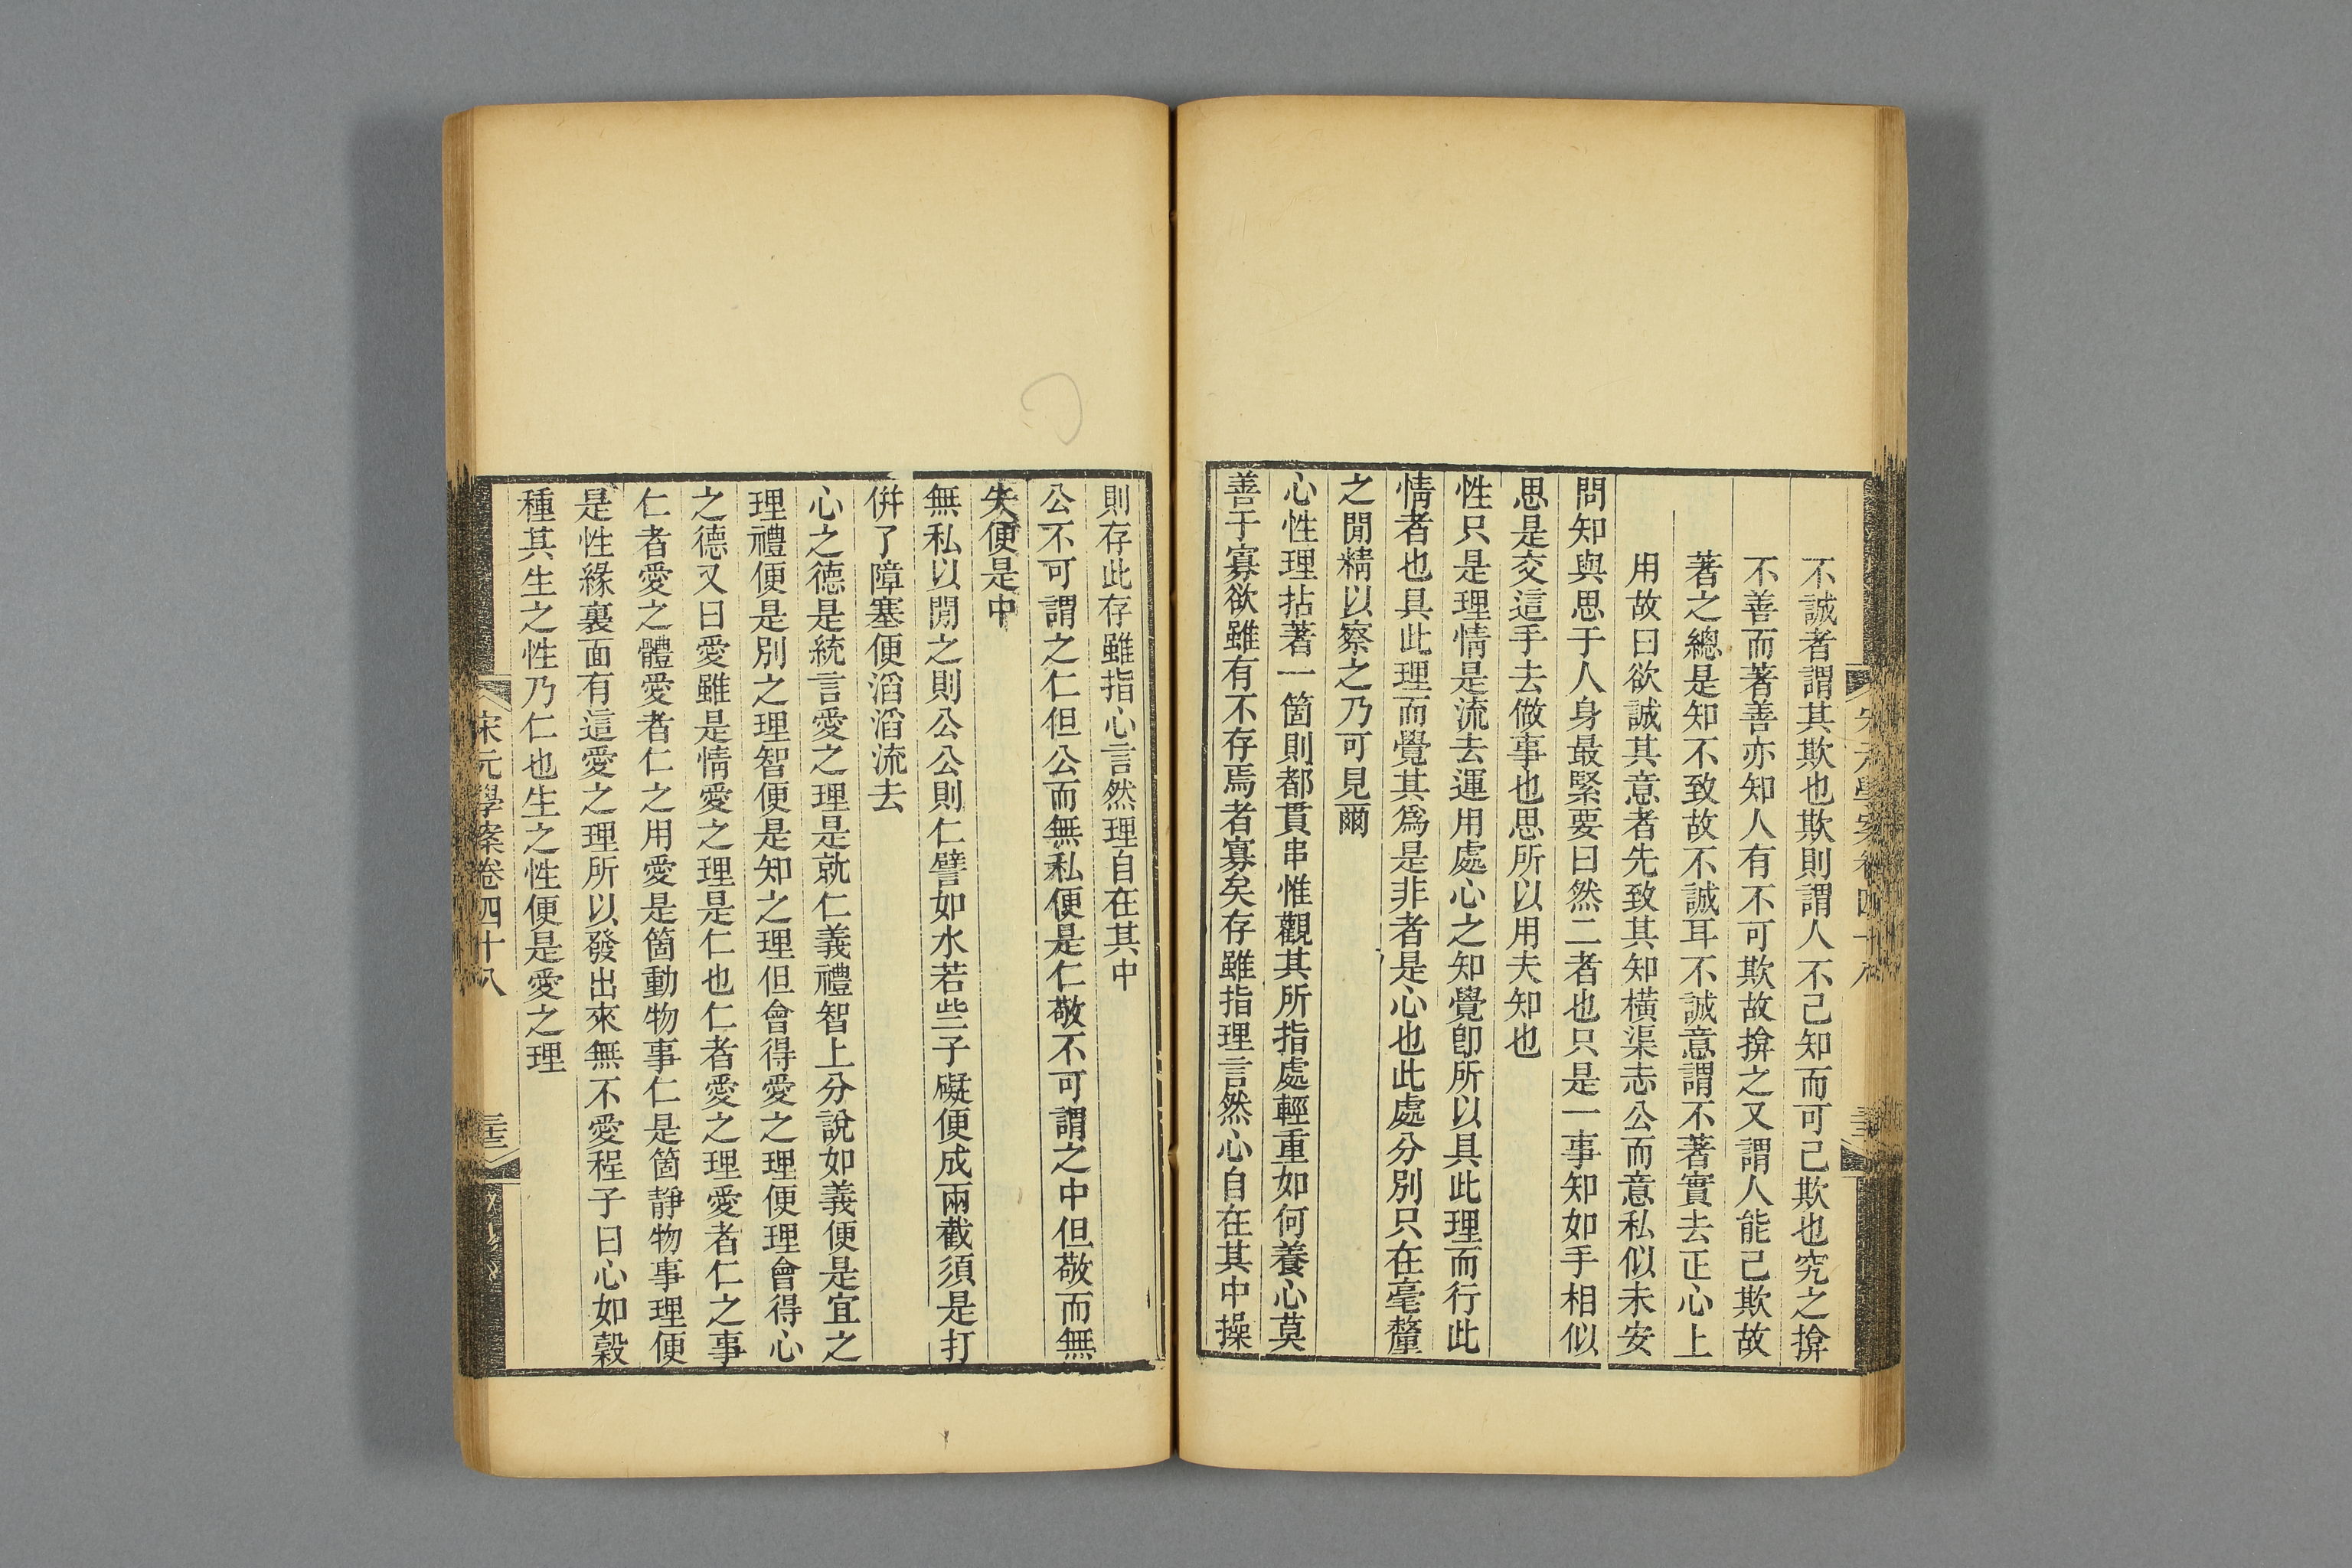 不誠者謂其欺也欺則謂人不己知而可己欺也究之揜
不善而著善亦知人有不可欺故揜之又謂人能己欺故
著之總是知不致故不誠耳不誠意謂不著實去正心上
用故曰欲誠其意者先致其知橫渠志公而意私似未安
問知與思于人身最緊要曰然二者也只是一事知如手相似
思是交這手去做事也思所以用夫知也
性只是理情是流去運用處心之知覺卽所以具此理而行此
情者也具此理而覺其爲是非者是心也此處分別只在毫釐
之閒精以察之乃可見爾
心性理拈著一箇則都貫串惟觀其所指處輕重如何養心莫
善于寡欲雖有不存焉者寡矣存雖指理言然心自在其中操
則存此存雖指心言然理自在其中
公不可謂之仁但公而無私便是仁敬不可謂之中但敬而無
失便是中
無私以閒之則公公則仁譬如水若些子礙便成兩截須是打
倂了障塞便滔滔流去
心之德是統言愛之理是就仁義禮智上分說如義便是宜之
理禮便是別之理智便是知之理但會得愛之理便理會得心
之德又曰愛雖是情愛之理是仁也仁者愛之理愛者仁之事
仁者愛之體愛者仁之用愛是箇動物事仁是箇靜物事理便
是性緣裏面有這愛之理所以發出來無不愛程子曰心如穀
種其生之性乃仁也生之性便是愛之理
宋元學案卷四十八